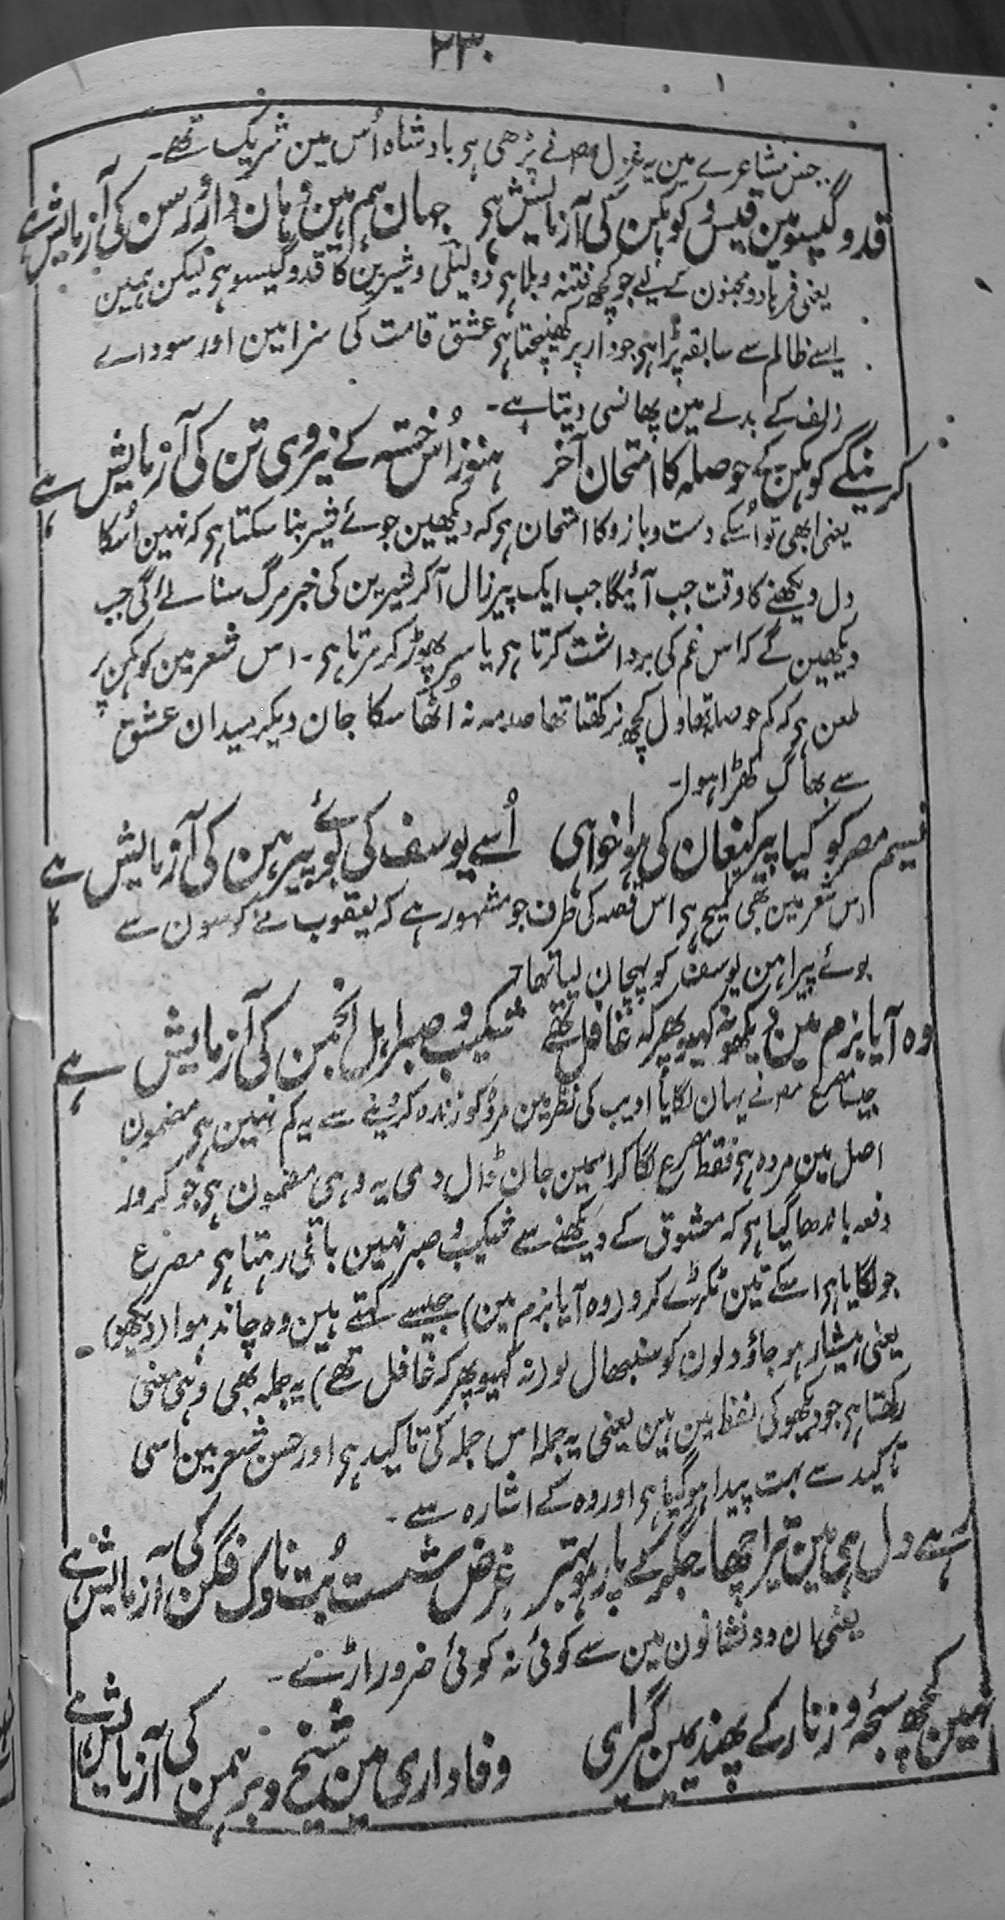 ۲۳۰
جس مشاعرے مین یہ غزل مصنے پڑھی ہی بادشاہ اُس مین شریک تھے۔
قدوگیسو مین قیس و کوہکن کی آزمایش ہی جہان ہم ہین وہان دار و رسن کی آزمایش ہے
یعنی فرہاد و مجنون کے لیے جو کچھ فتنہ و بلا ہی وہ لیلٰی و شیرین کا قدوگیسو ہی لیکن ہمین
ایسے ظالم سے سابقہ پڑا ہی جو دار پر کھینچتا ہی عشق قامت کی سزا مین اور سوداے
زلف کے بدلے مین پھانسی دیتا ہے۔
کرینگے کوہکن کے حوصلہ کا امتحان آخر ہنوز اُس خستہ کے نیروی تن کی آزمایش ہے
یعنی ابھی تو اُسکے دست و بازو کا امتحان ہی کہ دیکھین جوئے شیر بنا سکتا ہی کہ نہین اُسکا
دل دیکھنے کا وقت جب آئیگا جب ایک پیرزال آکر شیرین کی خبر مرگ سنائے گی جب
دیکھین گے کہ اس غم کی برداشت کرتا ہی یا سر پھوڑ کر مرتا ہی۔ اس شعر مین کوہکن پر
طعن ہی کہ کم حوصلہ تھا دل کچھ نرکھتا تھا صدمہ نہ اُٹھا سکا جان دیکر میدان عشق
سے بھاگ کھڑا ہوا۔
نسیم مصر کو کیا پیر کنعان کی ہواخواہی اُسے یوسف کی بُوئے پیرہن کی آزمایش ہے
اس شعر مین بھی تلمیح ہی اس قصہ کی طرف جو مشہور ہے کہ یعقوب نے کوسون سے
بوئے پیراہن یوسف کو پہچان لیا تھا۔
وہ آیا بزم مین دیکھو نہ کہیو پھر کہ غافل تھے شکیب و صبر اہل انجمن کی آزمایش ہے
جیسا مصرع مصنے یہان لگایا ادیب کی نظر مین مردہ کو زندہ کرنے سے یہ کم نہین ہی مضمون
اصل مین مردہ ہی فقط مصرع لگا کر اسمین جان ڈال دی یہ وہی مضمون ہی جو کرور
دفعہ باندھا گیا ہی کہ معشوق کے دیکھنے سے شکیب و صبر نہین باقی رہتا ہی مصرع
جو لگایا ہی اسکے تین ٹکڑے کرو (وہ آیا بزم مین) جیسے کہتے ہین وہ چاند ہوا (دیکھو)
یعنی ہشیار ہو جاؤ دلون کو سنبھال لو (نہ کہیو پھر کہ غافل تھے) یہ جملہ بھی وہی معنی
رکھتا ہی جو دیکھو کی لفظ مین ہین یعنی یہ جملہ اس جملہ کی تاکید ہی اور حسن شعر مین اسی
تاکید سے بہت پیدا ہو گیا ہی اور وہ کے اشارہ سے۔
رہے دل ہی مین تیر اچھا جگر کے پار ہو بہتر غرض شست بُت ناوک فگن کی آزمایش ہے
یعنی ان دو نشانون مین سے کوئی نہ کوئی ضرور اڑنے۔
نہین کچھ سُبحہ و زنار کے پھندیمین گیرائی وفاداری مین شیخ و برہمن کی آزمایش ہے